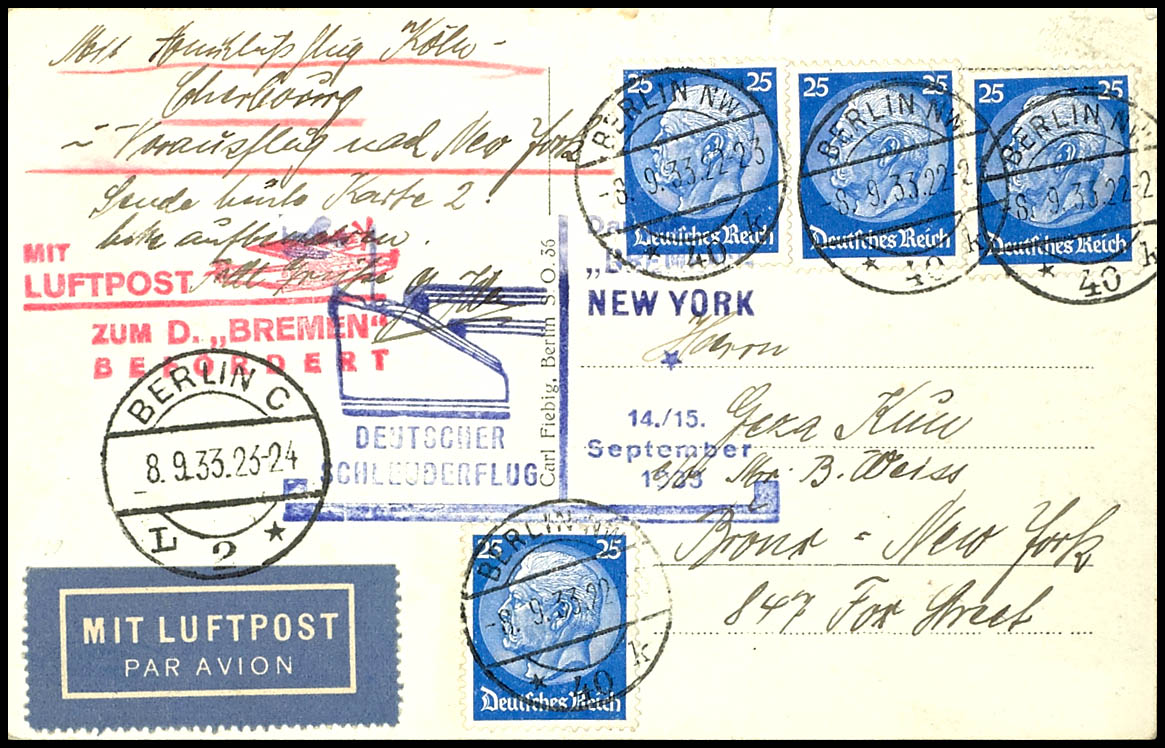 Mit Anschlußflug Köln -
Cherbourg
- Vorausflug nach New York
Sende heute Karte 2!
bitte aufbewahren.
MIT
LUFTPOST
ZUM D. „BREMEN“
BEFÖRDERT
BERLIN C
8.9.33.23-24
L 2 *
MIT LUFTPOST
PAR AVION
DEUTSCHER
SCHLEUDERFLUG
Carl Fiebig, Berlin S.O. 36
NEW YORK
14./15.
September
1933
25 25
Deutsches Reich
BERLIN NW
-8.9.33.22-23
* 40 k
25 25
Deutsches Reich
BERLIN NW
-8.9.33.22-2
* 40 k
25 25
Deutsches Reich
BERLIN NW
-8.9.33.22-2
* 40 k
Herrn
Geza Kun
c/o Mr. B. Weiss
Bronx - New York
847 Fox Street
25 25
Deutsches Reich
BERLIN NW
-8.9.33.22
* 40 k